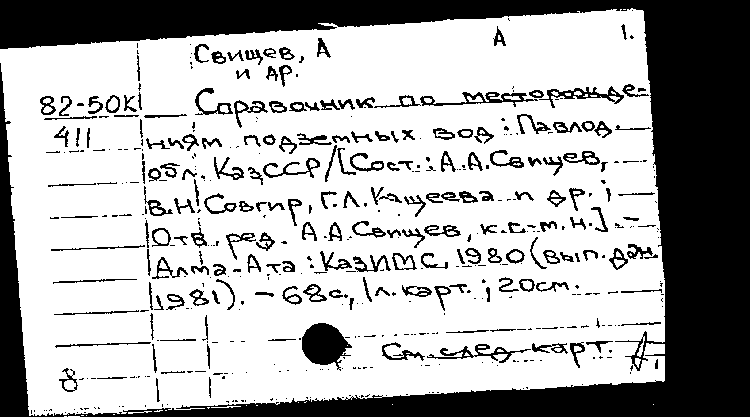 Свищев, А А 1.
и др.
82-50К Справочник по месторожде-
411 ниям подземных вод : Павлод.
обл. КазССР / [Сост.: А.А.Свищев,
В.Н. Совгир, Г.Л. Кащеева и др. ;
Отв. ред. А.А.Свищев, к.г.-м.н.]. –
Алма-Ата : КазИМС, 1980 (вып. дан.
1981). – 68с, 1л. карт. ; 20см.
См. след карт.
8